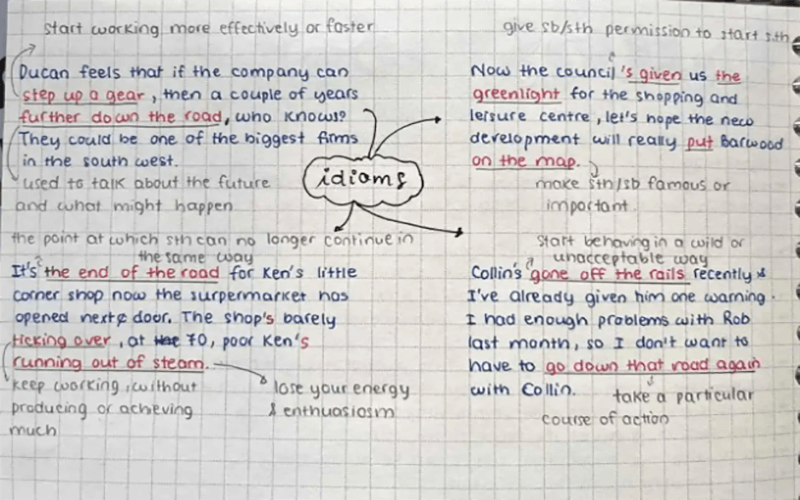 start working more effectively or faster
Ducan feels that if the company can
step up a gear, then a couple of years
further down the road, who knows?
They could be one of the biggest firms
in the south west.
used to talk about the future
and what might happen
give sb/sth permission to start sth
Now the council's given us the
greenlight for the shopping and
leisure centre, let's hope the new
development will really put Barwood
on the map.
make sth/sb famous or
important
idioms
the point at which sth can no longer continue in
the same way
It's the end of the road for Ken's little
corner shop now the surpermarket has
opened next door. The shop's barely
ticking over, at 70, poor Ken's
running out of steam.
keep working, without
producing or achieving
much
lose your energy
& enthuasiasm
start behaving in a wild or
unacceptable way
Collin's gone off the rails recently &
I've already given him one warning.
I had enough problems with Rob
last month, so I don't want to
have to go down that road again
with Collin.
take a particular
course of action